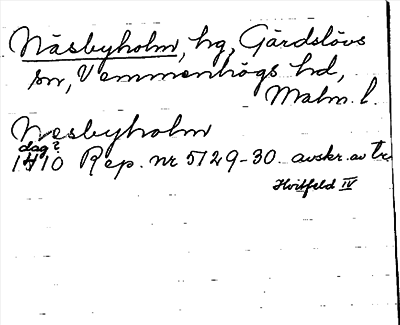 Näsbyholm, hg, Gärdslövs
sn, Vemmenhögs hd,
Malm. l.
Nesbyholm
dag?
1410 Rep. nr 5129-30 avskr. av Tr
Hvitfeld IV